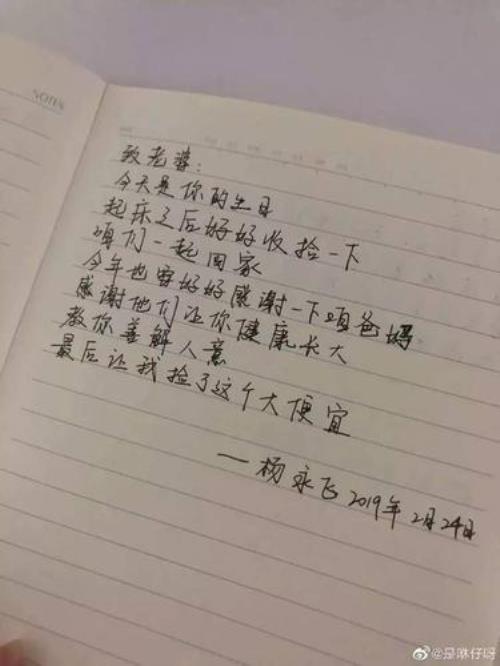 NOTES
致老婆：
今天是你的生日
起床之后好好收拾一下
咱们一起回家
今年也要好好感谢一下咱爸妈
感谢他们让你健康长大
教你善解人意
最后让我捡了这个大便宜
—杨永飞 2019年2月24日
@是淋仔呀